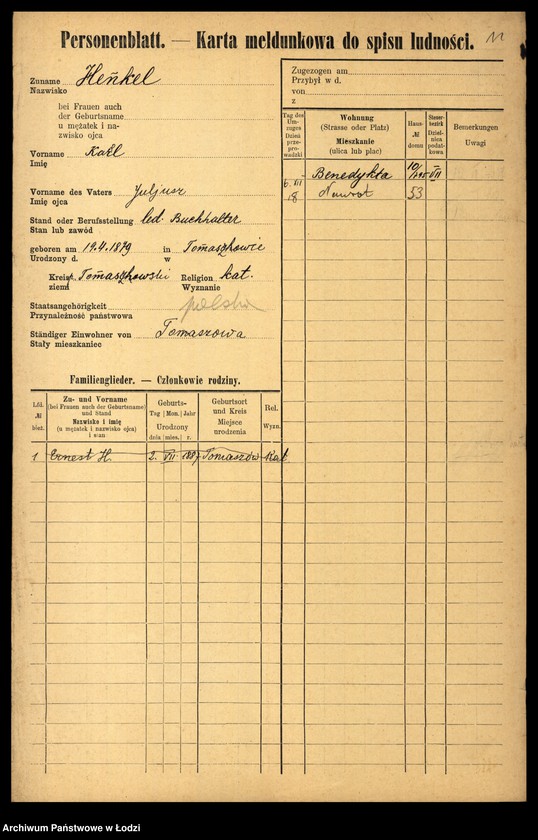 Personenblatt. — Karta meldunkowa do spisu ludności.
Zuname Heńkel
Nazwisko
bei Frauen auch
der Geburtsname
u mężatek i na-
zwisko ojca
Vorname Karl
Imię
Vorname des Vaters Juljusz
Imię ojca
Stand oder Berufsstellung led. Buchhalter
Stan lub zawód
geboren am 19.4.1879 in Tomaszkowie
Urodzony d. w
Kreis Tomaszkowski Religion kat.
ziemi Wyznanie
Staatsangehörigkeit polska
Przynależność państwowa
Ständiger Einwohner von Tomaszowa
Stały mieszkaniec
Familienglieder. — Członkowie rodziny.
Lfd. № bież.
Zu- und Vorname
(bei Frauen auch der Geburtsname)
und Stand
Nazwisko i imię
(u mężatek i nazwisko ojca)
i stan
Geburts-
Tag Mon. Jahr
Urodzony
dnia mies. r.
Geburtsort
und Kreis
Miejsce
urodzenia
Rel.
Wyzn.
1 Ernest H. 2. VII. Tomaszów Kat
Zugezogen am
Przybył w d.
von
z
Tag des
Um-
zuges
Dzień
prze-
prowadzki
Wohnung
(Strasse oder Platz)
Mieszkanie
(ulica lub plac)
Haus-
№
domu
Steuer-
bezirk
Dziel-
nica
podat-
kowa
Bemerkungen
Uwagi
Benedykta 10/ VII
6. VII Nawrot 53
18
Archiwum Państwowe w Łodzi